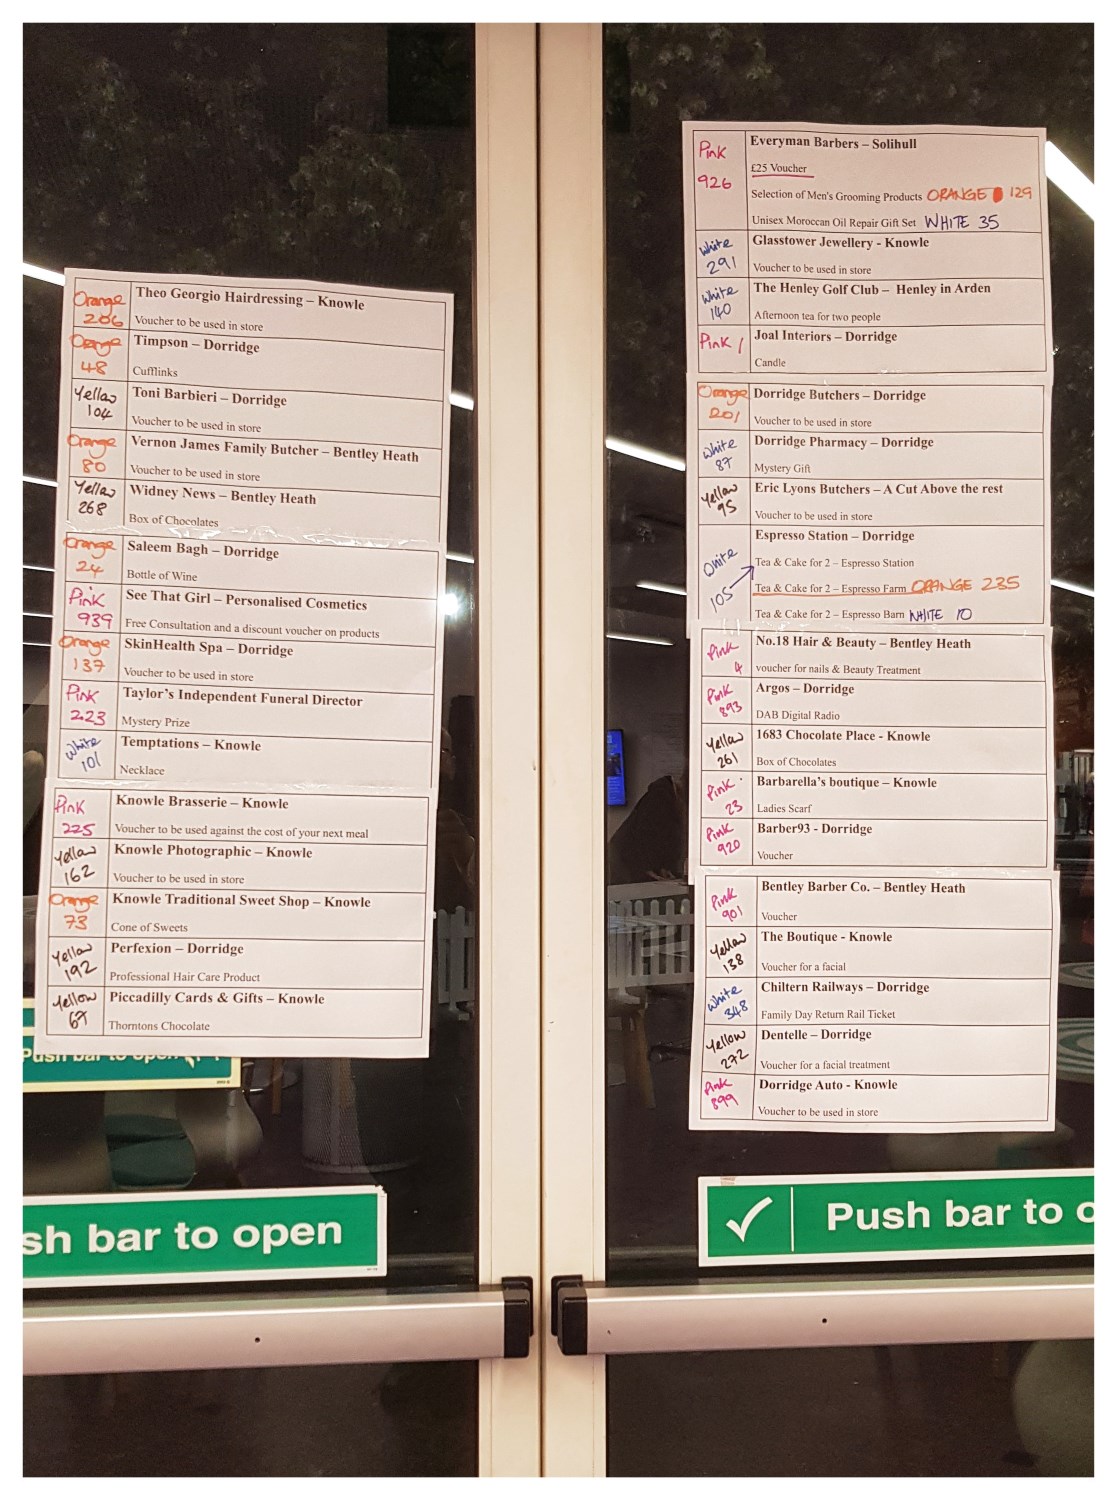 Orange 206
Theo Georgio Hairdressing – Knowle
Voucher to be used in store
Orange 48
Timpson – Dorridge
Cufflinks
Yellow 104
Toni Barbieri – Dorridge
Voucher to be used in store
Orange 80
Vernon James Family Butcher – Bentley Heath
Voucher to be used in store
Yellow 268
Widney News – Bentley Heath
Box of Chocolates
Orange 24
Saleem Bagh – Dorridge
Bottle of Wine
Pink 939
See That Girl – Personalised Cosmetics
Free Consultation and a discount voucher on products
Orange 137
SkinHealth Spa – Dorridge
Voucher to be used in store
Pink 223
Taylor's Independent Funeral Director
Mystery Prize
White 101
Temptations – Knowle
Necklace
Pink 225
Knowle Brasserie – Knowle
Voucher to be used against the cost of your next meal
Yellow 162
Knowle Photographic – Knowle
Voucher to be used in store
Orange 73
Knowle Traditional Sweet Shop – Knowle
Cone of Sweets
Yellow 192
Perfexion – Dorridge
Professional Hair Care Product
Yellow 67
Piccadilly Cards & Gifts – Knowle
Thorntons Chocolate
Push bar to open
sh bar to open
Pink 926
Everyman Barbers – Solihull
£25 Voucher
Selection of Men's Grooming Products ORANGE 129
Unisex Moroccan Oil Repair Gift Set WHITE 35
White 291
Glasstower Jewellery - Knowle
Voucher to be used in store
White 140
The Henley Golf Club – Henley in Arden
Afternoon tea for two people
Pink 1
Joal Interiors – Dorridge
Candle
Orange 201
Dorridge Butchers – Dorridge
Voucher to be used in store
White 87
Dorridge Pharmacy – Dorridge
Mystery Gift
Yellow 95
Eric Lyons Butchers – A Cut Above the rest
Voucher to be used in store
Espresso Station – Dorridge
White 105
Tea & Cake for 2 – Espresso Station
Tea & Cake for 2 – Espresso Farm ORANGE 235
Tea & Cake for 2 – Espresso Barn WHITE 10
Pink 4
No.18 Hair & Beauty – Bentley Heath
voucher for nails & Beauty Treatment
Pink 893
Argos – Dorridge
DAB Digital Radio
Yellow 261
1683 Chocolate Place - Knowle
Box of Chocolates
Pink 23
Barbarella's boutique – Knowle
Ladies Scarf
Pink 920
Barber93 - Dorridge
Voucher
Pink 901
Bentley Barber Co. – Bentley Heath
Voucher
Yellow 138
The Boutique - Knowle
Voucher for a facial
White 348
Chiltern Railways – Dorridge
Family Day Return Rail Ticket
Yellow 272
Dentelle – Dorridge
Voucher for a facial treatment
Pink 899
Dorridge Auto - Knowle
Voucher to be used in store
Push bar to o